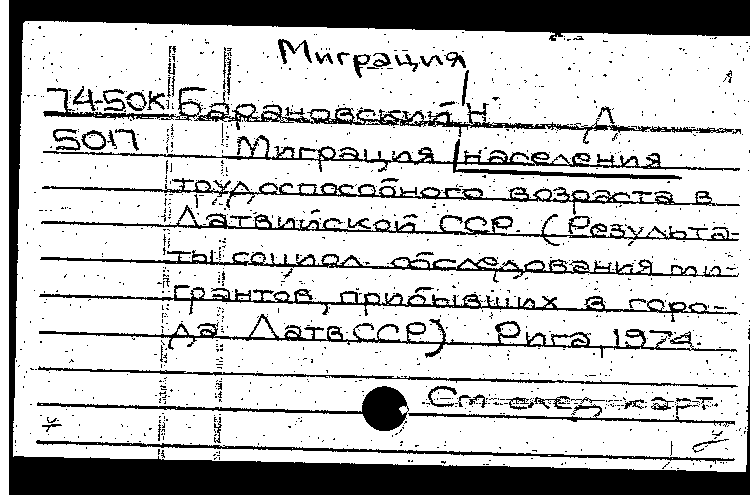 Миграция
74-50к Барановский Н. Д
5017 Миграция населения
трудоспособного возраста в
Латвийской ССР. (Результа-
ты социол. обследования ми-
грантов, прибывших в горо-
да Латв.ССР). Рига, 1974.
См след карт